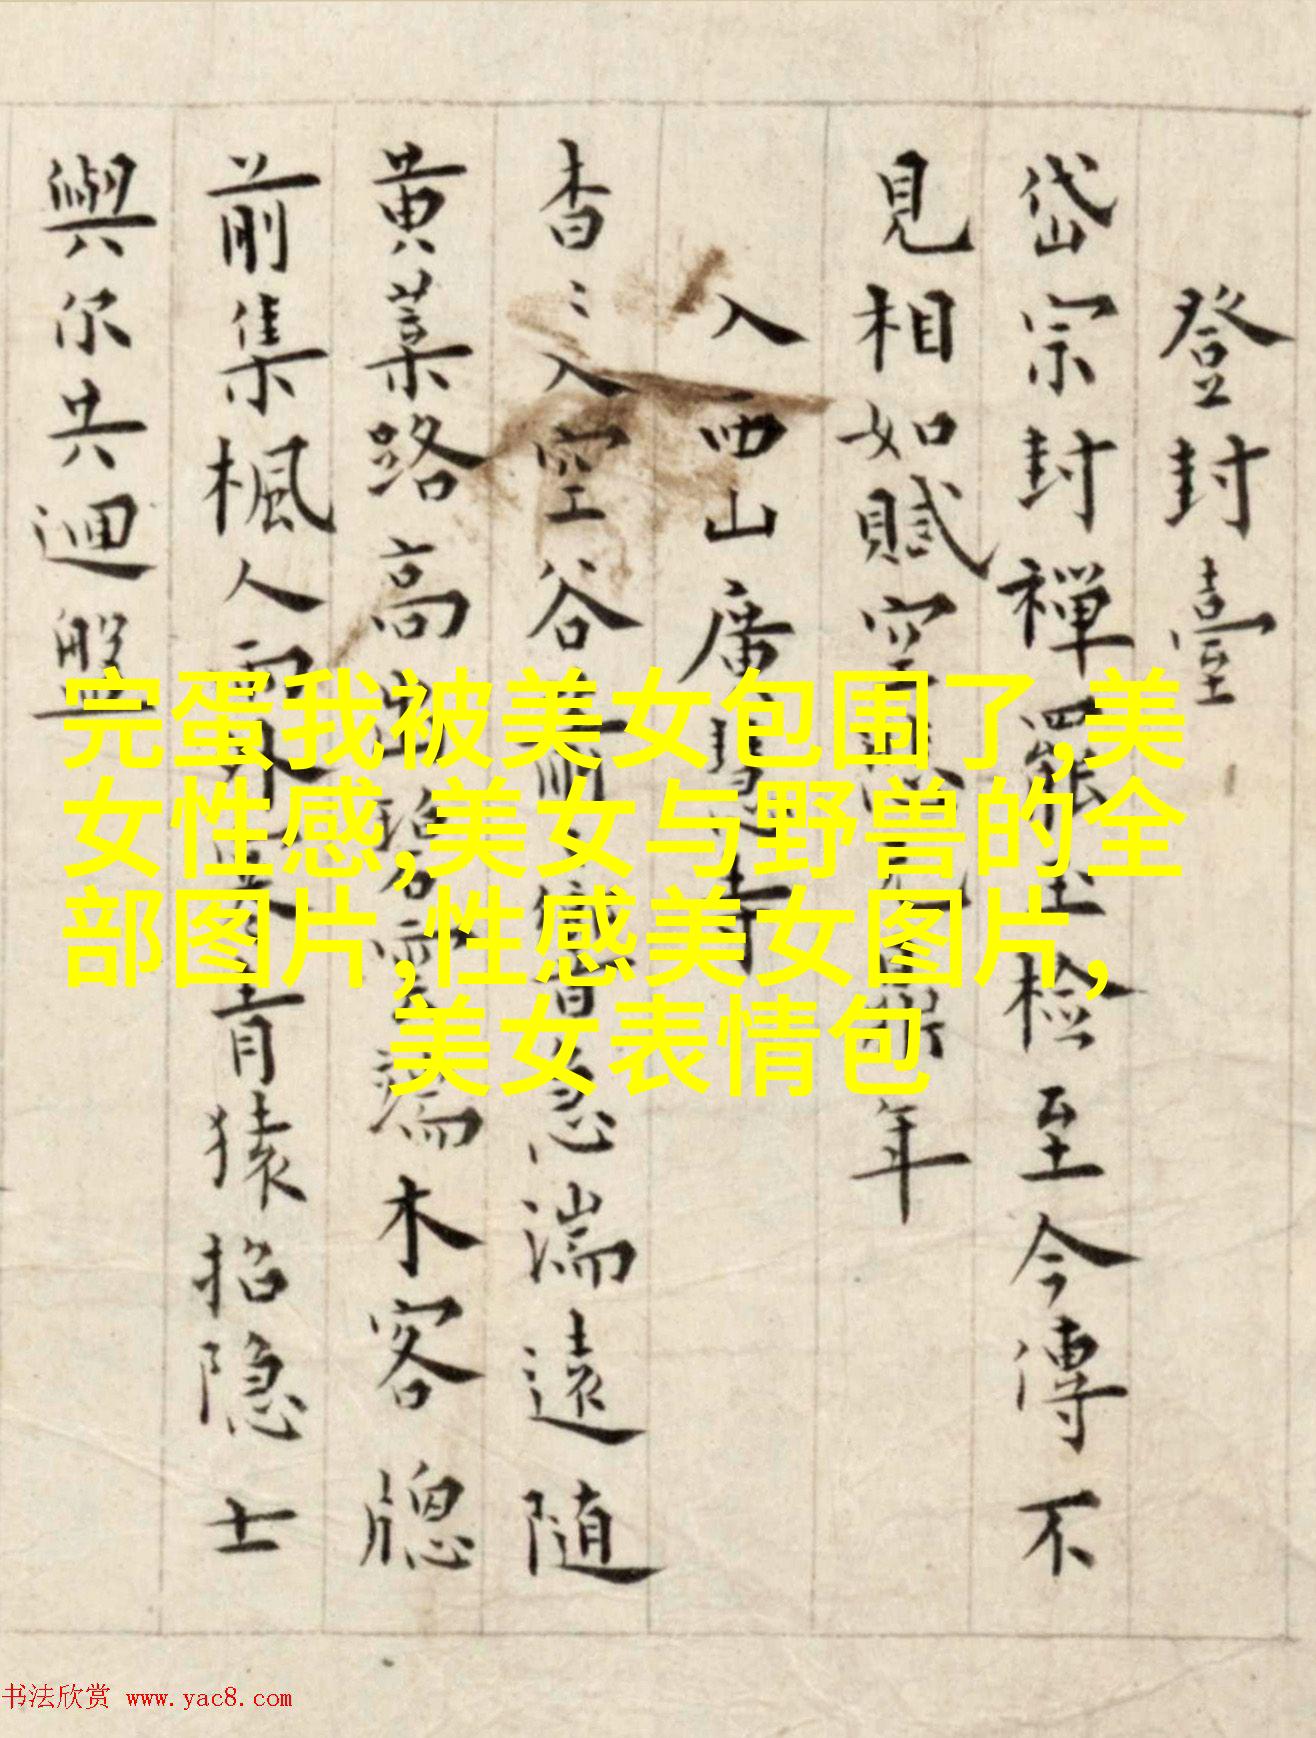 登封臺
岱宗封禪罷玉檢至今傳不
見相如賦空年
入西山廣慧寺
杳〻入空谷前急湍遠随
黄葉路高出碧雲端木客牕
前集楓人雨外青猿招隐士
與尔共廻盤
完蛋我被美女包围了,美
女性感,美女与野兽的全
部图片,性感美女图片,
美女表情包
书法欣赏 www.yac8.com